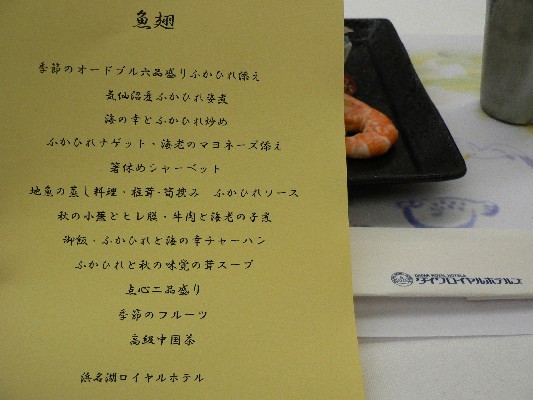 魚翅
季節のオードブル六品盛りふかひれ添え
気仙沼産ふかひれ姿煮
海の幸とふかひれ炒め
ふかひれナゲット・海老のマヨネーズ添え
箸休めシャーベット
地魚の蒸し料理・椎茸・筍挟み ふかひれソース
秋の小蕪とヒレ膜・牛肉と海老の子煮
御飯・ふかひれと海の幸チャーハン
ふかひれと秋の味覚の茸スープ
点心二品盛り
季節のフルーツ
高級中国茶
浜名湖ロイヤルホテル
DAIWA ROYAL HOTELS
ダイワロイヤルホテルズ